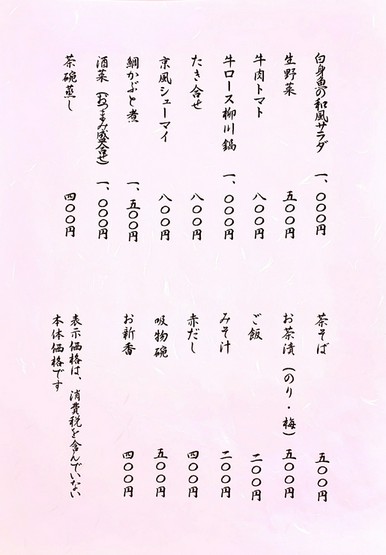 白身魚の和風サラダ 一、〇〇〇円
生野菜 五〇〇円
牛肉トマト 八〇〇円
牛ロース柳川鍋 一、〇〇〇円
たき合せ 八〇〇円
京風シューマイ 八〇〇円
鯛かぶと煮 一、五〇〇円
酒菜(おつまみ盛合せ) 一、〇〇〇円
茶碗蒸し 四〇〇円
茶そば 五〇〇円
お茶漬(のり・梅) 五〇〇円
ご飯 二〇〇円
みそ汁 二〇〇円
赤だし 四〇〇円
吸物碗 五〇〇円
お新香 四〇〇円
表示価格は、消費税を含んでいない
本体価格です